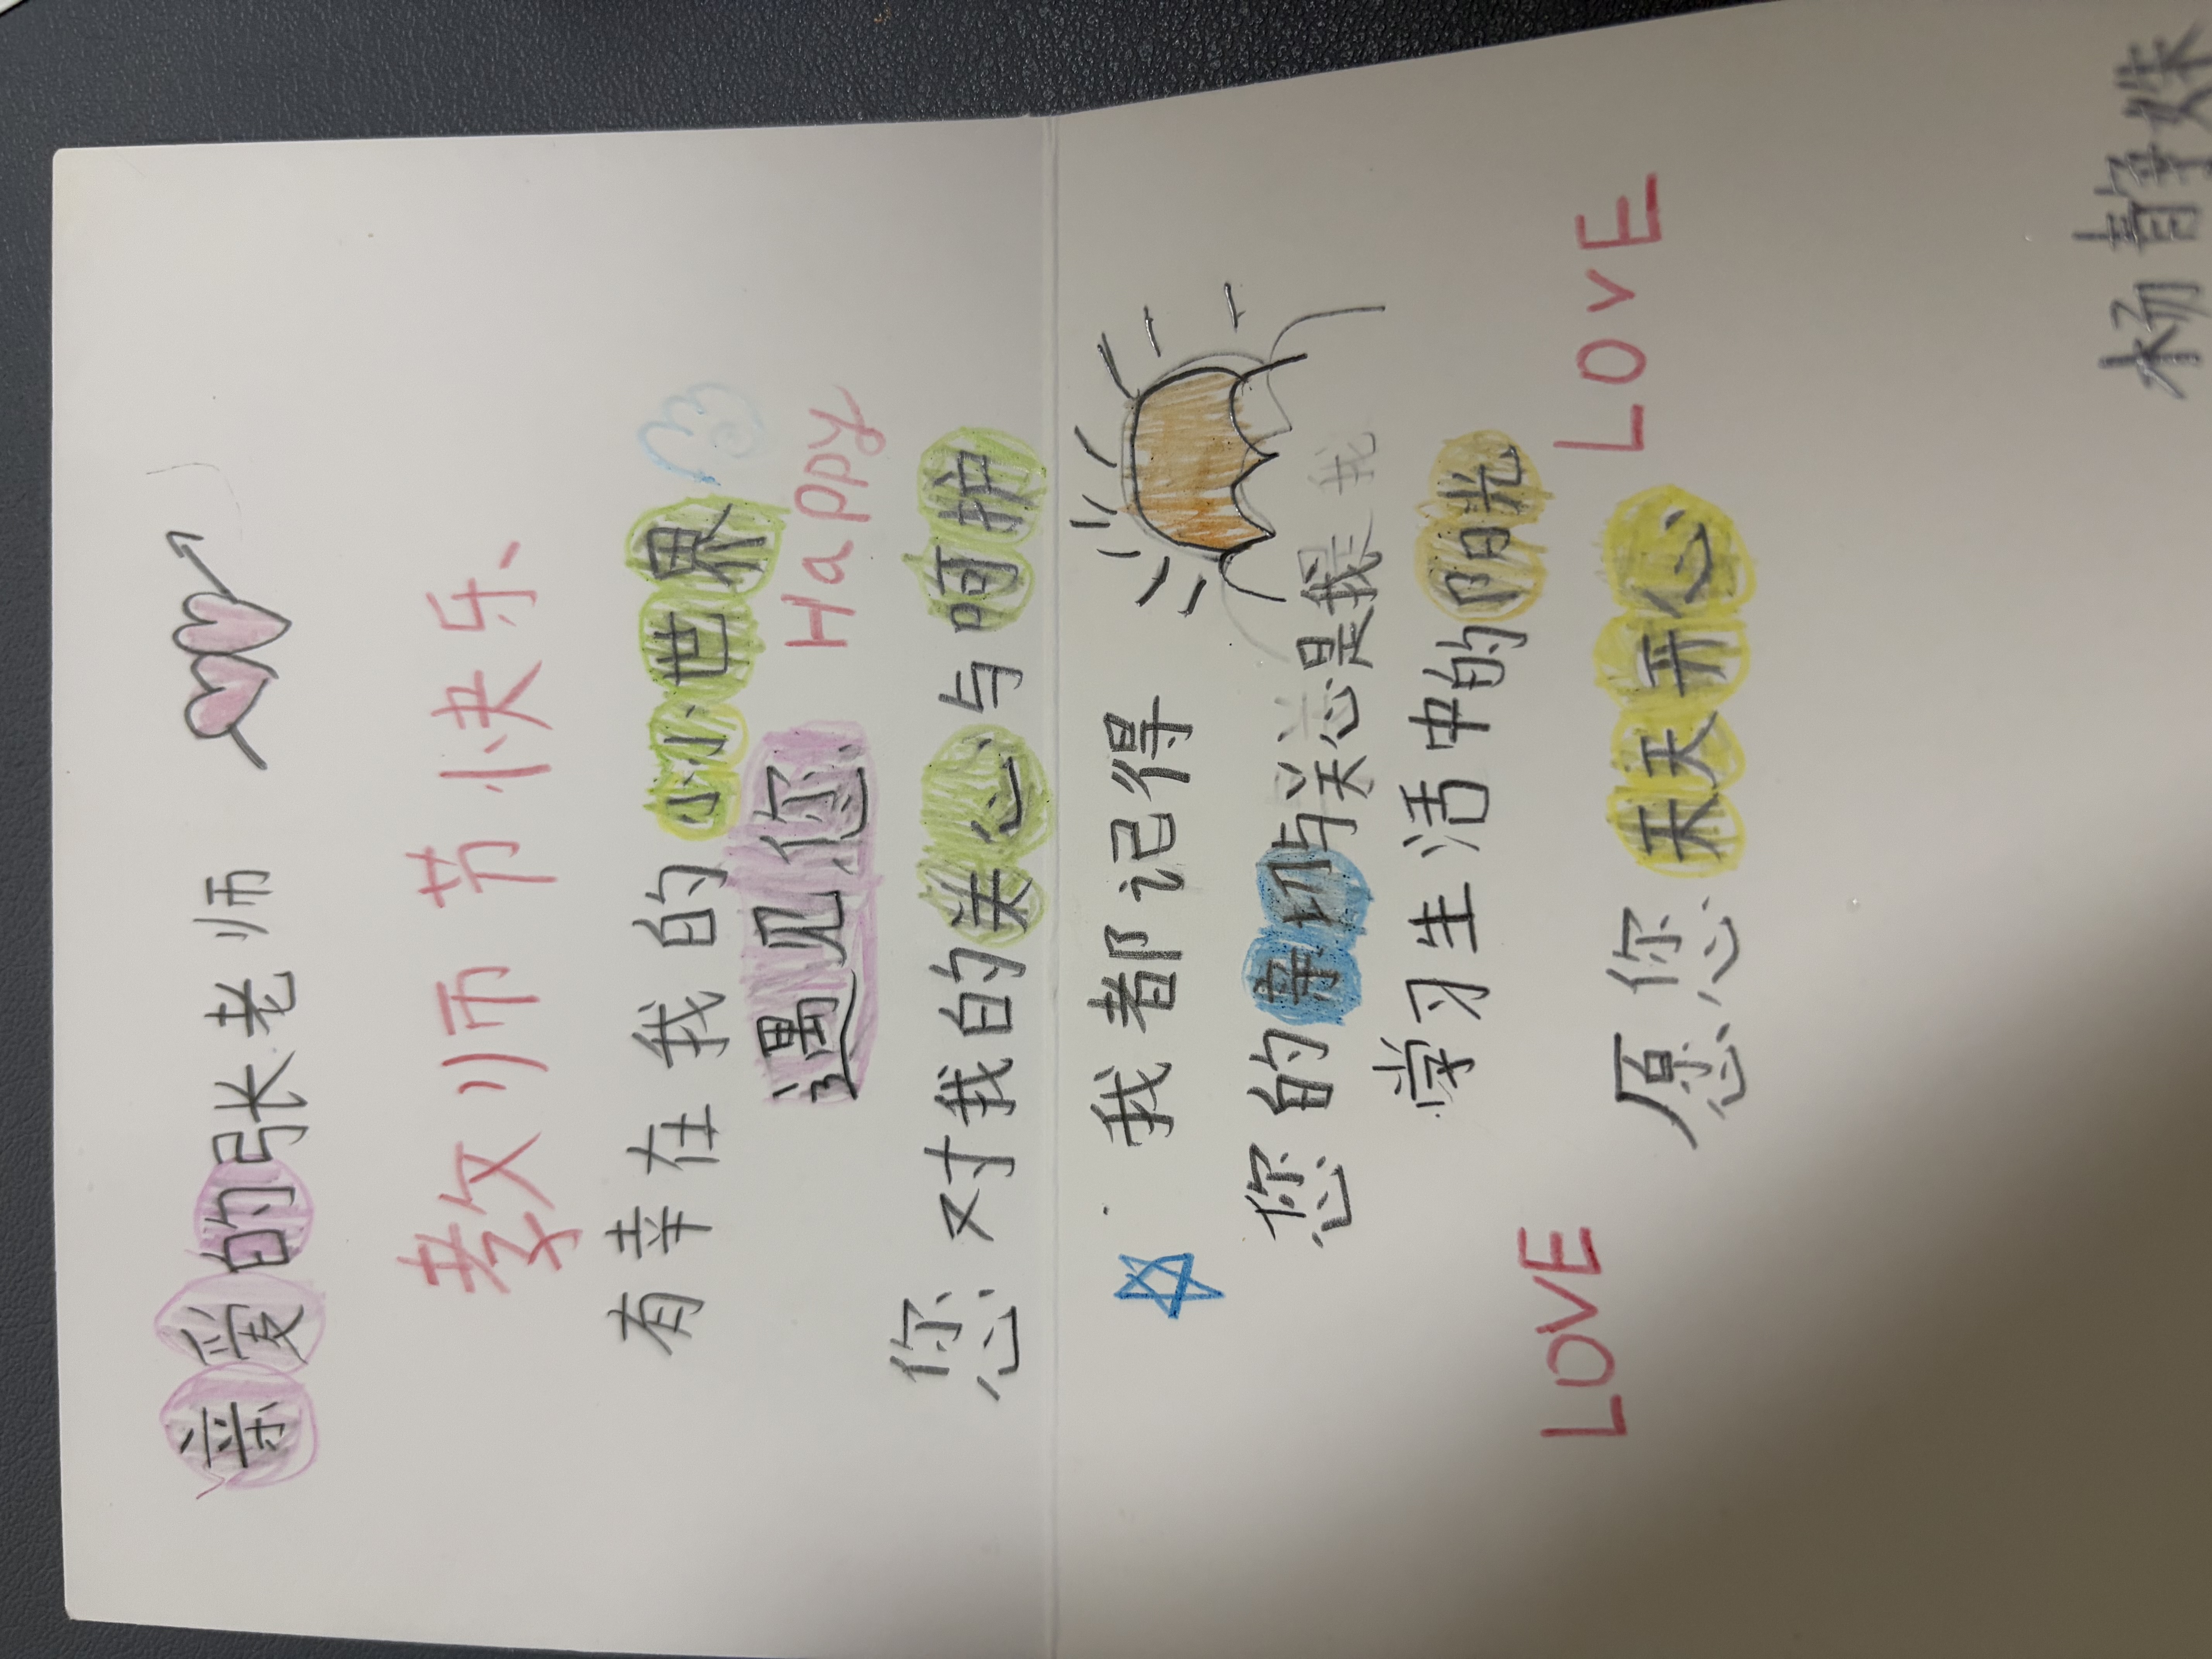 亲爱的张老师
教师节快乐
有幸在我的小小世界
遇见您
Happy
您对我的关心与呵护
我都记得
您的亲切与关心总是我
学习生活中的阳光
LOVE
LOVE
愿您天天开心
杨静姝